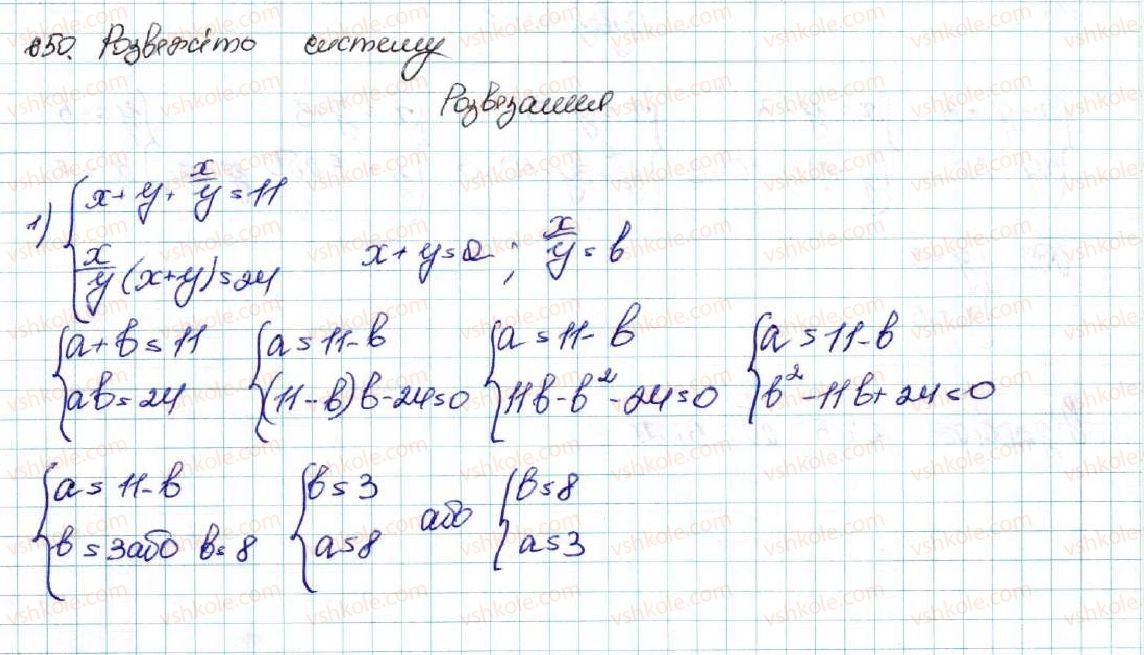 850. Розвяжіть систему
Розвязання
1) { x + y + x/y = 11
x/y (x+y) = 24
x + y = a ; x/y = b
{ a + b = 11 { a = 11 - b { a = 11 - b { a = 11 - b
ab = 24 (11 - b)b - 24 = 0 11b - b² - 24 = 0 b² - 11b + 24 = 0
{ a = 11 - b { b = 3 або { b = 8
b = 3 або b = 8 a = 8 a = 3
vshkole.com